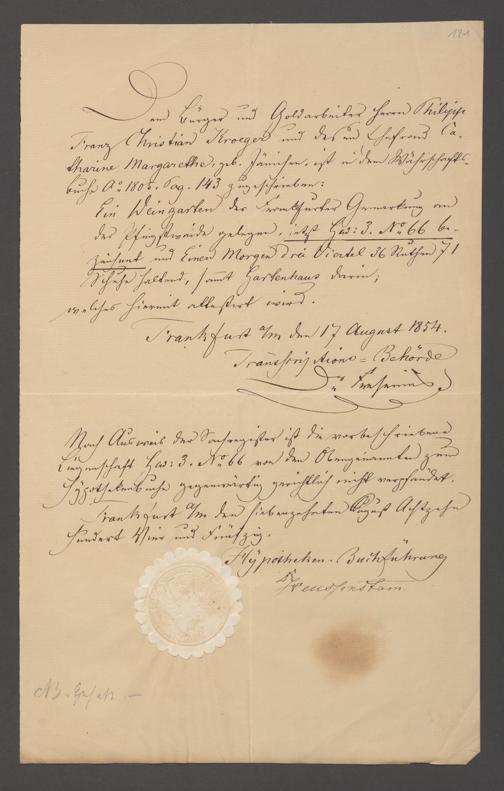 121
Dem Bürger und Goldarbeiter Herrn Philipp
Franz Christian Kroeger und dessen Ehefrau Ca-
tharine Margarethe, geb. Hänichen, ist in dem Währschafts-
buche Ao 1806. Pag. 143 zugeschrieben:
Ein Weingarten der Frankfurter Gemarkung an
der Pfingstweide gelegen, jetzt Gew: 3. No 66 be-
zeichnet und Einen Morgen drei Viertel 36 Ruthen 71
Schuhe haltend, samt Gartenhaus darin;
welches hiermit attestirt wird.
Frankfurt a/m den 17 August 1854.
Transcriptions-Behörde
Dr Fresenius
Nach Ausweis der Insatzregister ist die vorbeschriebene
Liegenschaft Gew: 3. No 66 von den Obengenannten zum
Hypothekenbuche gegenwärtig gerichtlich nicht verpfändet.
Frankfurt a/m den siebenzehnten August Achtzehn
hundert Vier und Fünfzig.
Hypotheken-Buchführung